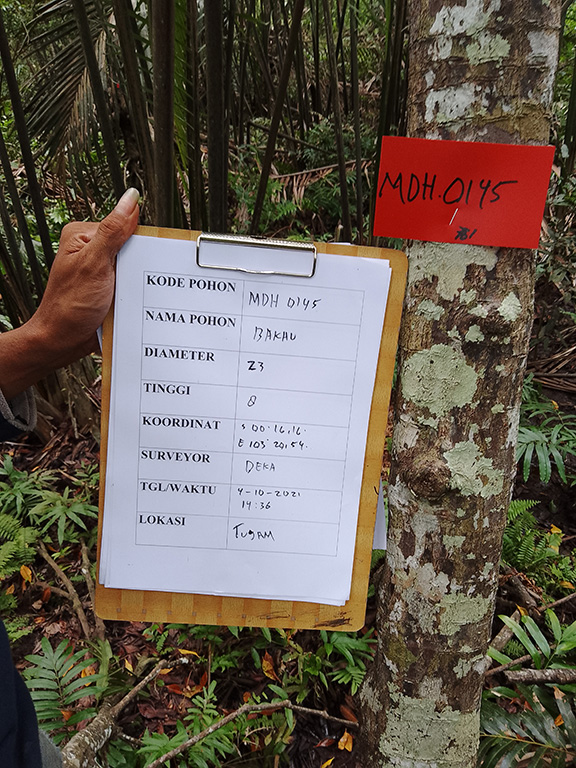 MDH.0145
KODE POHON MDH 0145
NAMA POHON BAKAU
DIAMETER 23
TINGGI 8
KOORDINAT S 00.16,16.
E 103° 20,54.
SURVEYOR DEKA
TGL/WAKTU 4-10-2021
14:36
LOKASI